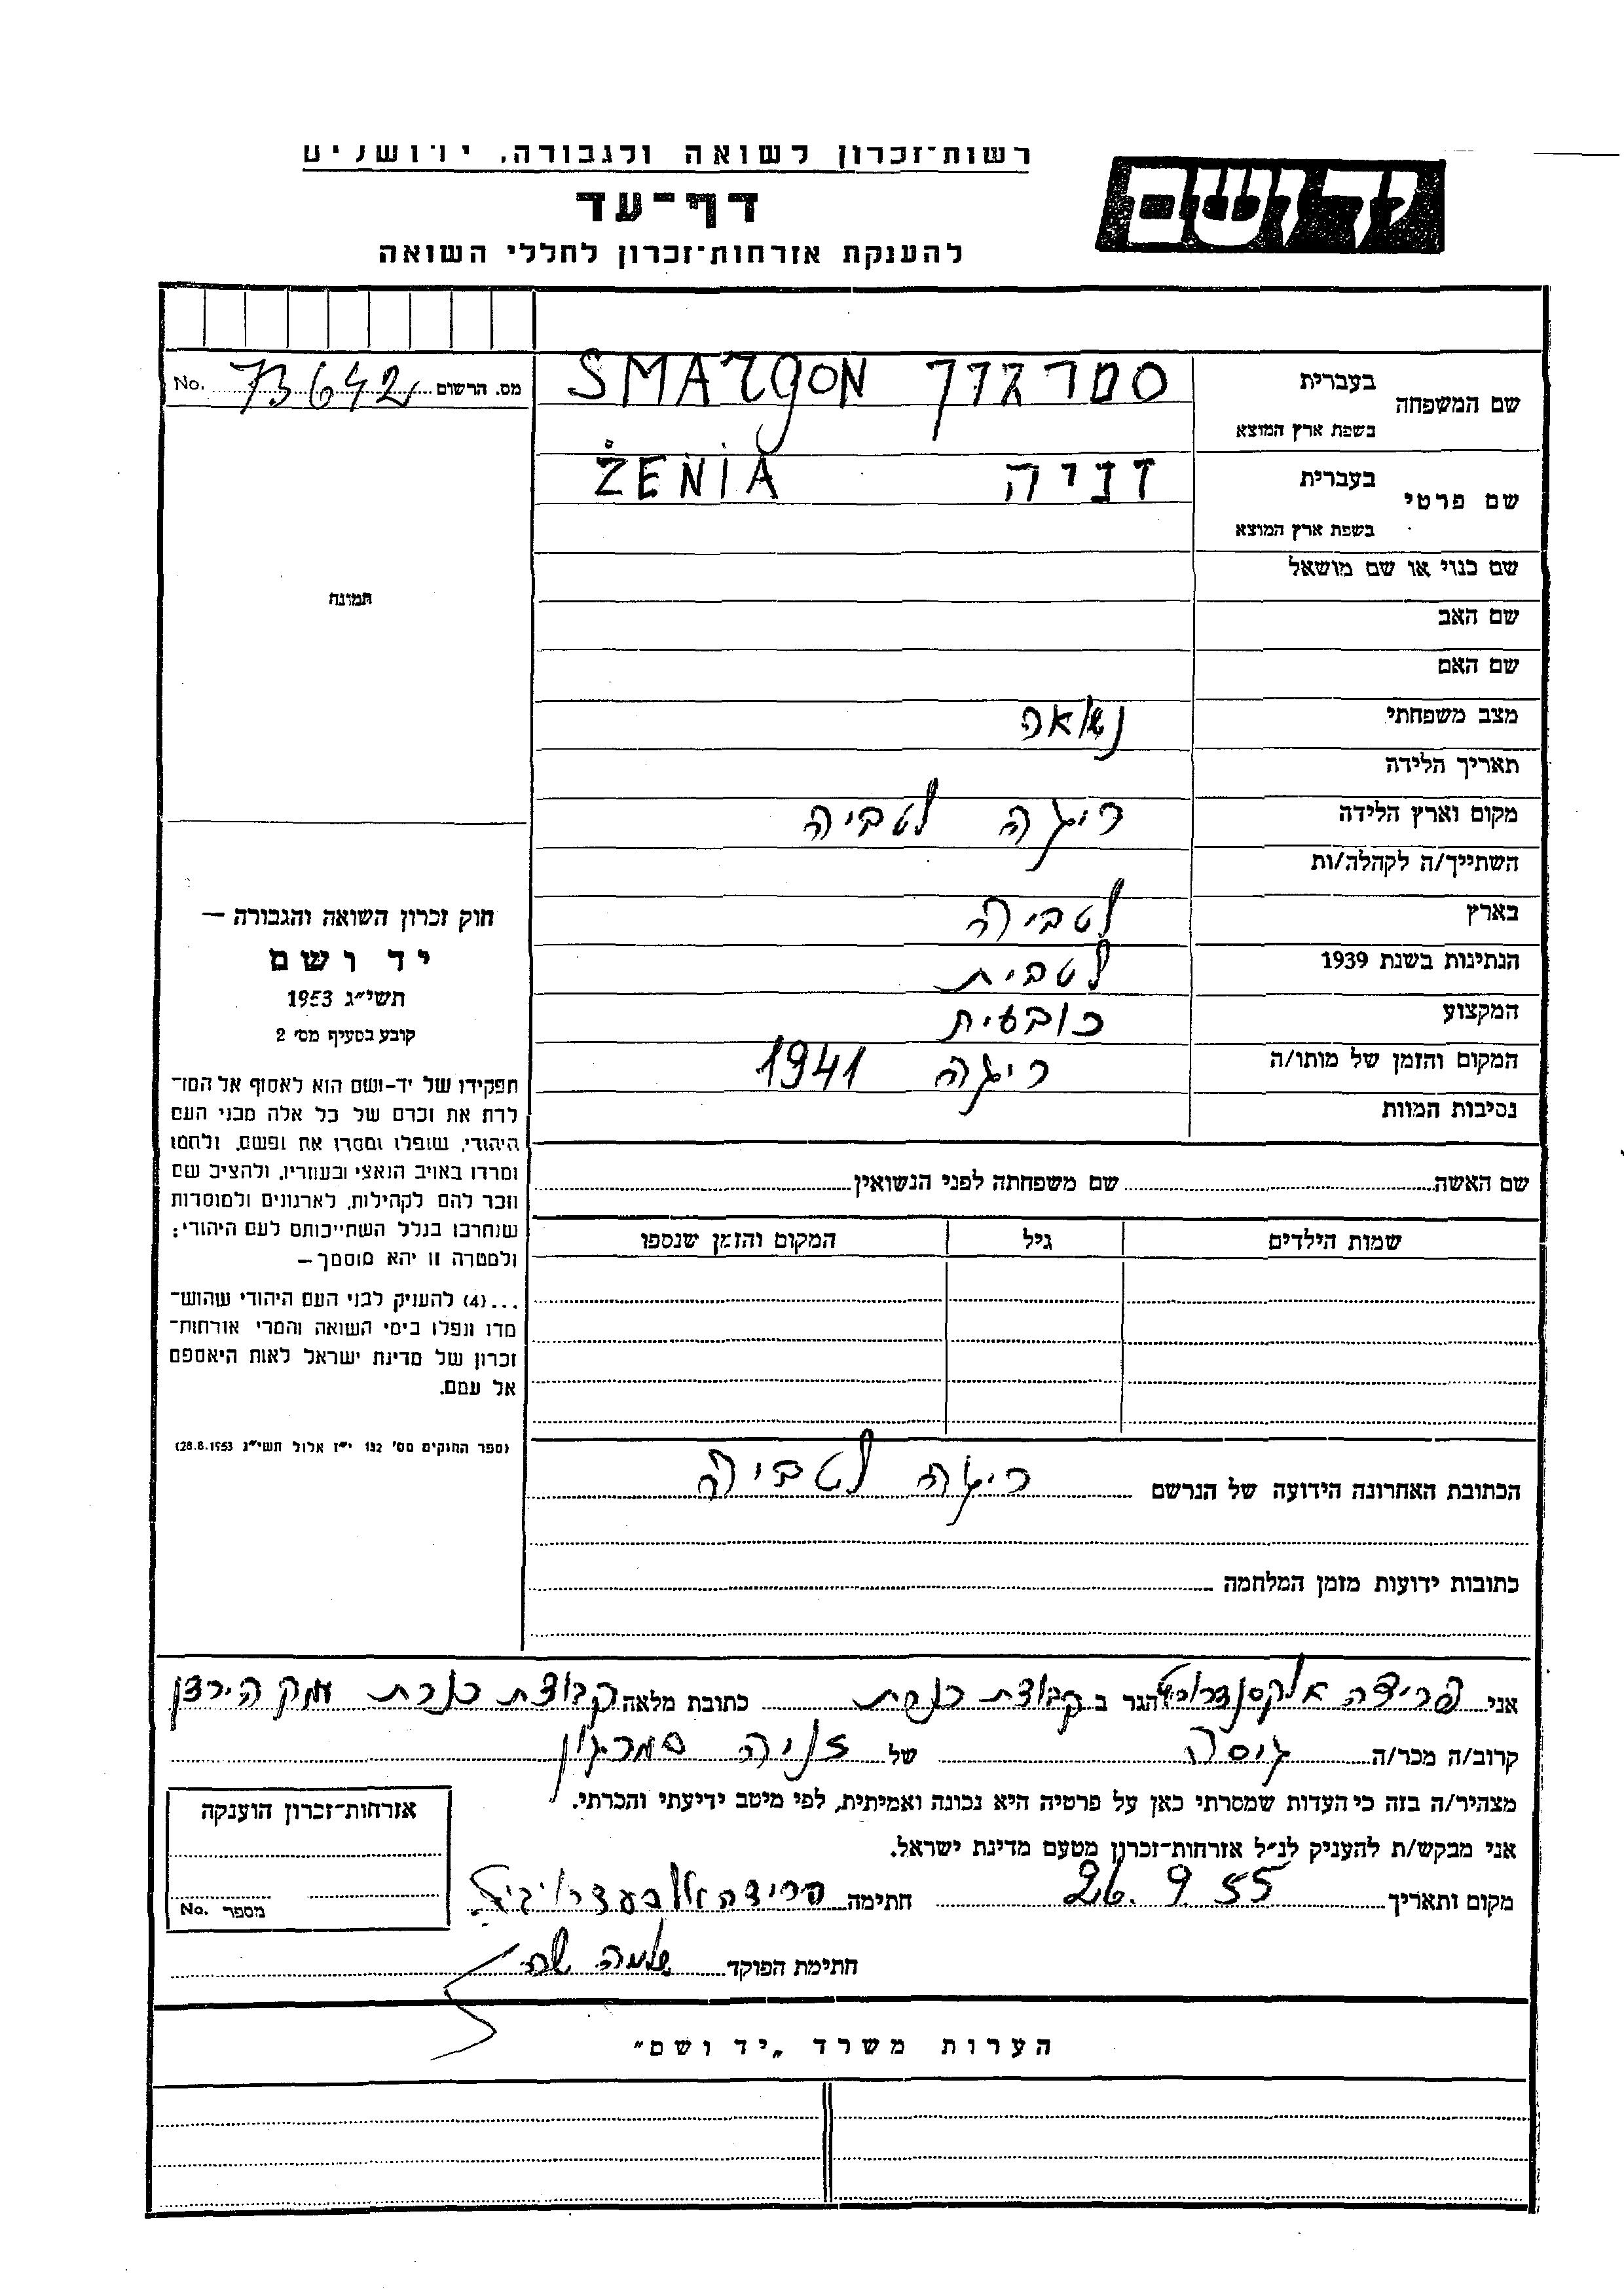 רשות־זכרון לשואה ולגבורה, ירושלים
יד ושם
דף־עד
להענקת אזרחות־זכרון לחללי השואה
מס. הרשום 73642 No.
שם המשפחה
בעברית סמרגון SMARGON
בשפת ארץ המוצא
שם פרטי
בעברית זניה ŻENIA
בשפת ארץ המוצא
שם כנוי או שם מושאל
שם האב
שם האם
מצב משפחתי נשואה
תאריך הלידה
מקום וארץ הלידה ריגה לטביה
השתייך/ה לקהלה/ות
בארץ לטביה
הנתינות בשנת 1939 לטבית
המקצוע כובעית
המקום והזמן של מותו/ה ריגה 1941
נסיבות המוות
שם האשה שם משפחתה לפני הנשואין
שמות הילדים גיל המקום והזמן שנספו
הכתובת האחרונה הידועה של הנרשם ריגה לטביה
כתובות ידועות מזמן המלחמה
תמונה
חוק זכרון השואה והגבורה —
יד ושם
תשי״ג 1953
קובע בסעיף מס׳ 2
תפקידו של יד-ושם הוא לאסוף אל המו־
לדת את זכרם של כל אלה מבני העם
היהודי, שנפלו ומסרו את נפשם, ולחמו
ומרדו באויב הנאצי ובעוזריו, ולהציב שם
וזכר להם לקהילות, לארגונים ולמוסדות
שנחרבו בגלל השתייכותם לעם היהודי;
ולמטרה זו יהא מוסמך —
...(4) להעניק לבני העם היהודי שהוש־
מדו ונפלו בימי השואה והמרי אזרחות־
זכרון של מדינת ישראל לאות היאספם
אל עמם.
(ספר החוקים מס׳ 132 י״ז אלול תשי״ג 28.8.1953)
אני פרידה אלקסנדרוביץ הגר ב קבוצת כנרת כתובת מלאה קבוצת כנרת עמק הירדן
קרוב/ה מכר/ה גיסה של זניה סמרגון
מצהיר/ה בזה כי העדות שמסרתי כאן על פרטיה היא נכונה ואמיתית, לפי מיטב ידיעתי והכרתי.
אני מבקש/ת להעניק לנ״ל אזרחות־זכרון מטעם מדינת ישראל.
מקום ותאריך 26.9.55 חתימה
חתימת הפוקד
אזרחות־זכרון הוענקה
מספר No.
הערות משרד „יד ושם״